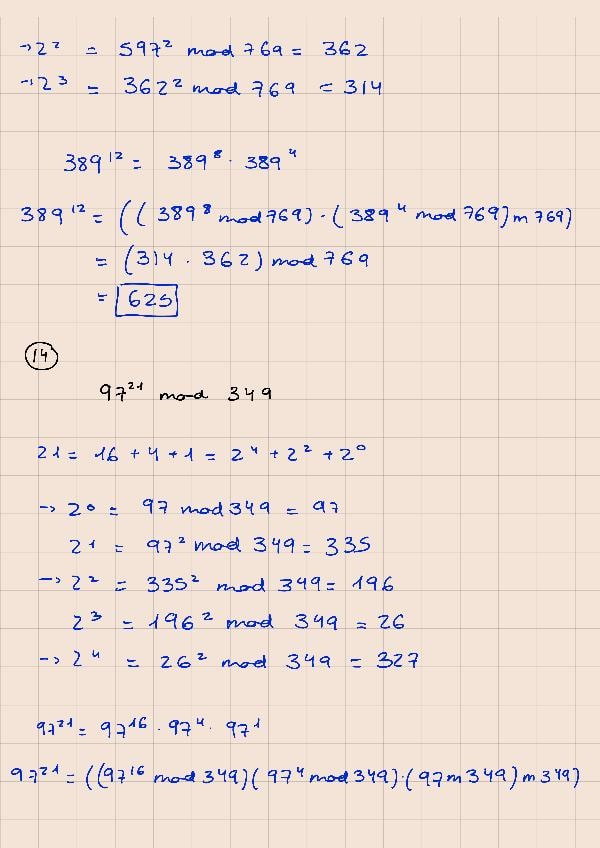 → 2² = 597² mod 769 = 362
→ 2³ = 362² mod 769 = 314
389¹² = 389⁸ · 389⁴
389¹² = ((389⁸ mod 769) · (389⁴ mod 769) m 769)
= (314 · 362) mod 769
= 625
14
97²¹ mod 349
21 = 16 + 4 + 1 = 2⁴ + 2² + 2⁰
→ 2⁰ = 97 mod 349 = 97
2¹ = 97² mod 349 = 335
→ 2² = 335² mod 349 = 196
2³ = 196² mod 349 = 26
→ 2⁴ = 26² mod 349 = 327
97²¹ = 97¹⁶ · 97⁴ · 97¹
97²¹ = ((97¹⁶ mod 349)(97⁴ mod 349) · (97 m 349) m 349)